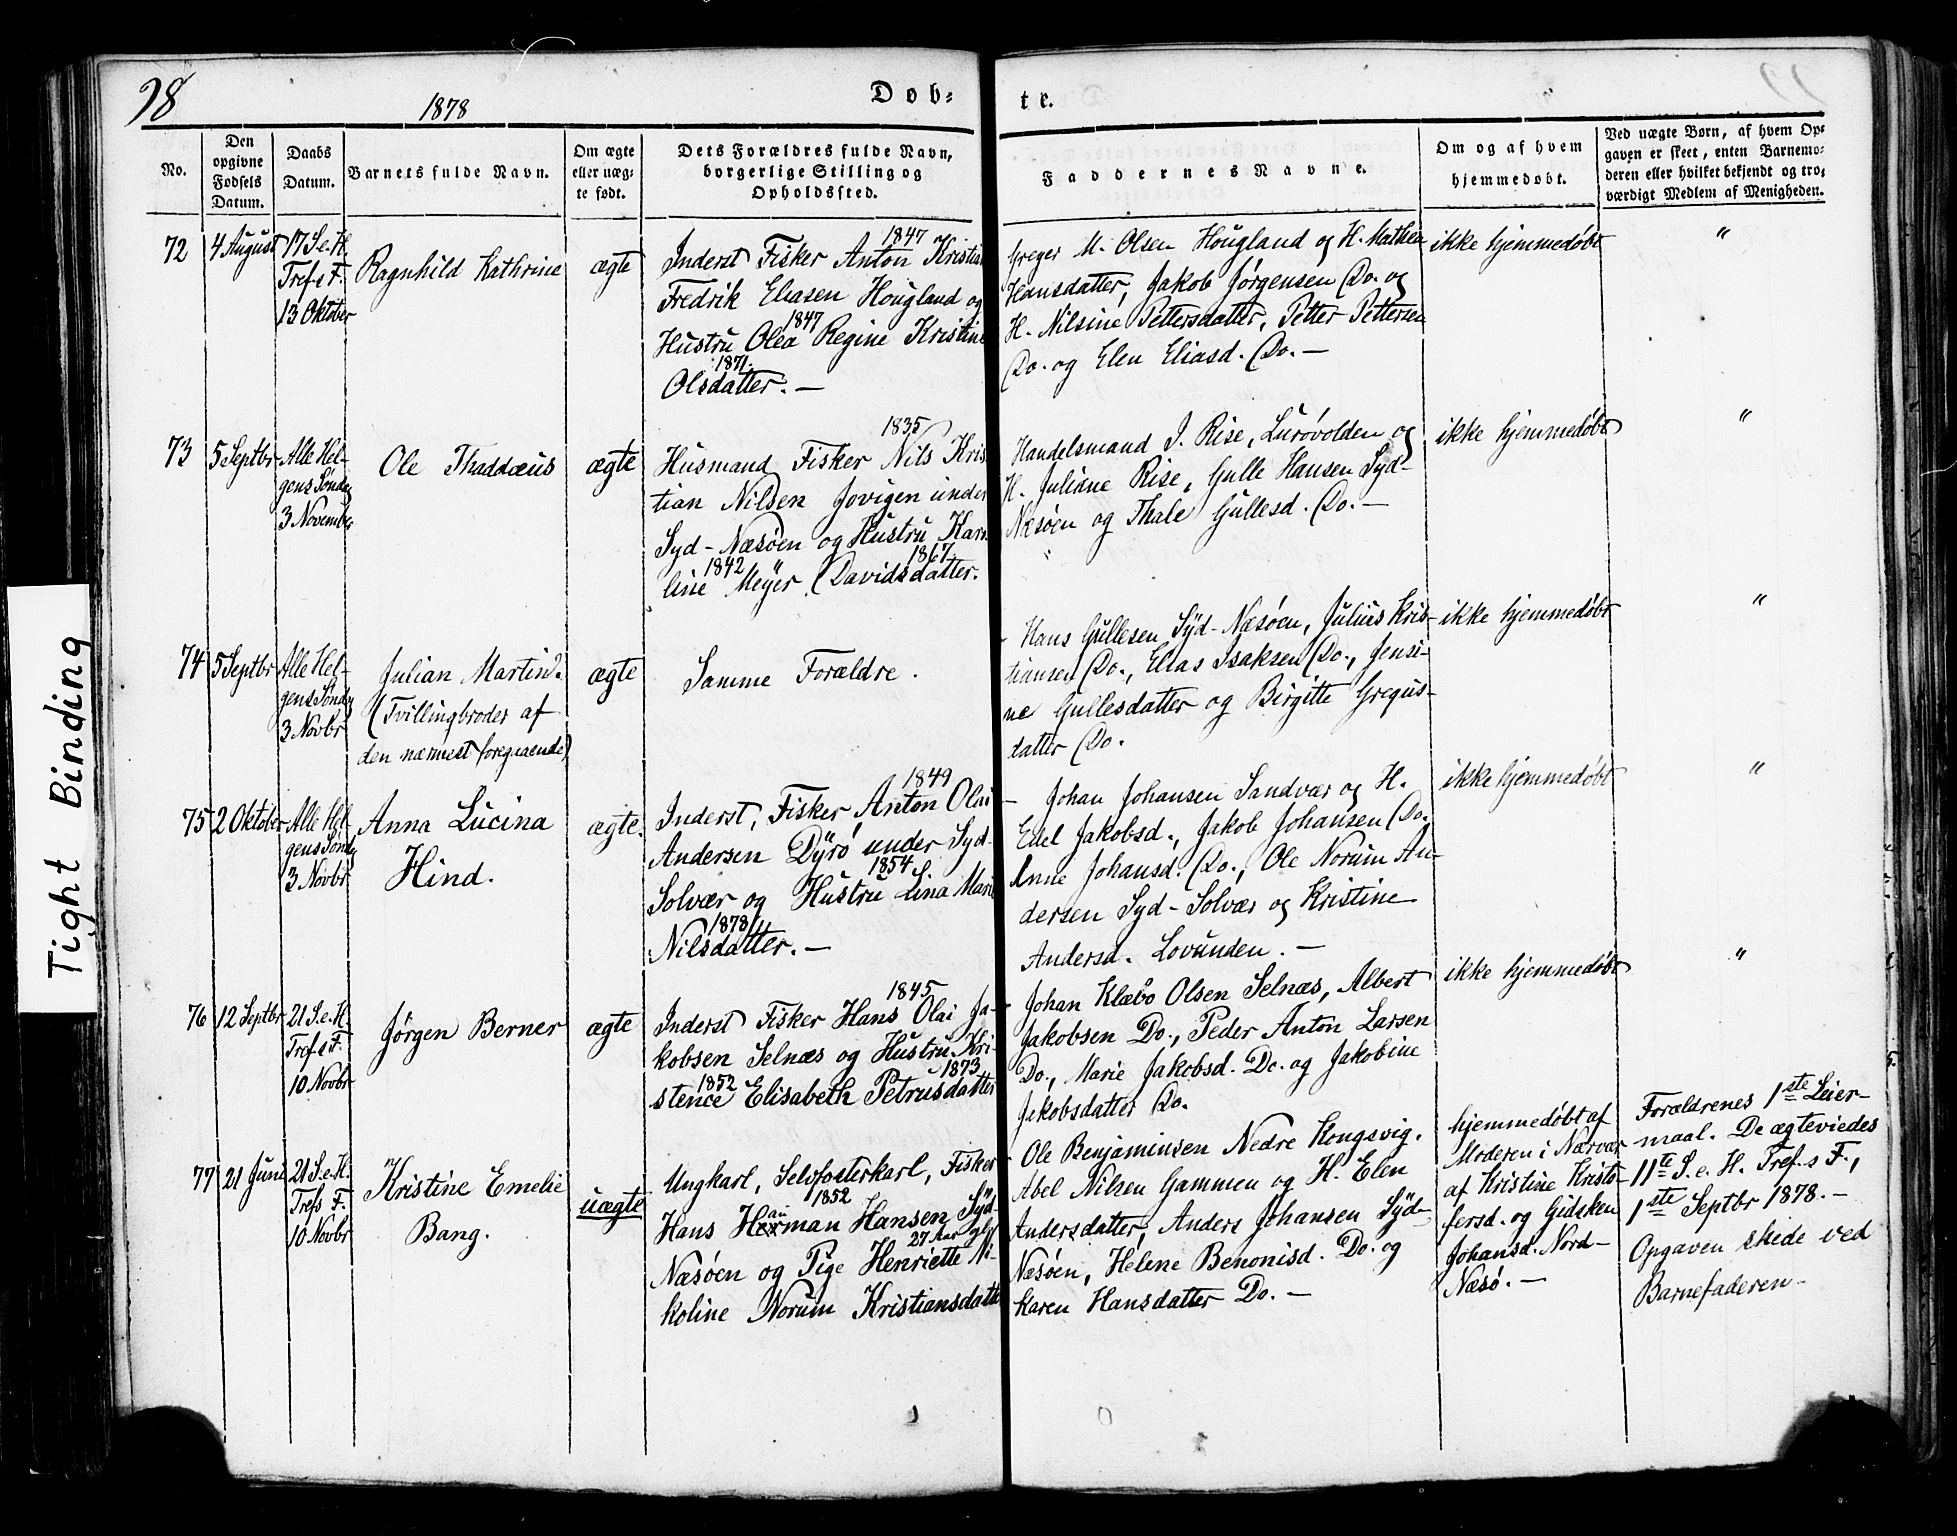 98
1878
Døb-
te.
No.
Den
opgivne
Fødsels
Datum.
Daabs
Datum.
Barnets fulde Navn.
Om ægte
eller uæg-
te født.
Dets Forældres fulde Navn,
borgerlige Stilling og
Opholdssted.
Faddernes Navne.
Om og af hvem
hjemmedøbt.
Ved uægte Børn, af hvem Op-
gaven er skeet, enten Barnemo-
deren eller hvilket bekjendt og tro-
værdigt Medlem af Menigheden.
72
4 August
17 S. e. H.
Tref. s F.
13 Oktober
Ragnhild Kathrine
ægte
1847
Inderst Fisker Anton Kristian
Fredrik Eliasen Hougland og
1847
Hustru Olea Regine Kristine
1871.
Olsdatter. —
Greger M. Olsen Hougland og H. Mathea
Hansdatter, Jakob Jørgensen Do. og
H. Nilsine Pettersdatter, Petter Pettersen
Do. og Elen Eliasd. Do. —
ikke hjemmedøbt
"
73
5 Septbr
Alle Hel-
gens Søndag
3 Novembr
Ole Thaddæus
ægte
1835
Husmand Fisker Nils Kris
tian Nilsen Jovigen under
Syd-Næsøen og Hustru Karo
1842 1867.
line Meyer Davidsdatter.
Handelsmand J. Rise, Lurøvolden og
H. Juliane Rise, Gulle Hansen Syd-
Næsøen og Thale Gullesd. Do. —
ikke hjemmedøbt
"
74
5 Septbr
Alle Hel-
gens Søndag
3 Novbr
Julian Martin
(Tvillingbroder af
den nærmest foregaaende)
ægte
Samme Forældre.
Hans Gullesen Syd-Næsøen, Julius Kris-
tiansen Do., Elias Isaksen Do., Jensi-
ne Gullesdatter og Birgitte Gregus-
datter Do.
ikke hjemmedøbt
"
75
2 Oktober
Alle Hel-
gens Søndg
3 Novbr
Anna Lucina
Hind.
ægte.
1849
Inderst, Fisker Anton Olai
Andersen Dyrø under Syd-
1854
Solvær og Hustru Lina Mari
1878
Nilsdatter. —
Johan Johansen Sandvær og H.
Edel Jakobsd., Jakob Johansen Do.
Anne Johansd. Do., Ole Norum An-
dersen Syd-Solvær og Kristine
Andersd. Lovunden. —
ikke hjemmedøbt
"
76
12 Septbr
21 S. e. H.
Tref. s F.
10 Novbr
Jørgen Berner
ægte
1845
Inderst Fisker Hans Olai Ja-
kobsen Selnæs og Hustru Kri-
1852 1873
stence Elisabeth Petrusdatter
Johan Klæbo Olsen Selnæs, Albert
Jakobsen Do., Peder Anton Larsen
Do., Marie Jakobsd. Do. og Jakobine
Jakobsdatter Do.
ikke hjemmedøbt
"
77
21 Juni
21 S. e. H.
Trefs F.
10 Novbr
Kristine Emelie
Bang.
uægte
Ungkarl, Selvfosterkarl, Fisker
1852
Hans Herman Hansen Syd-
27 Aar gl.
Næsøen og Pige Henriette Ni-
koline Norum Kristiansdatter
Ole Benjaminsen Nedre Kongsvig.
Abel Nilsen Gammen og H. Elen
Andersdatter, Anders Johansen Syd-
Næsøen, Helene Benonisd. Do. og
Karen Hansdatter Do. —
hjemmedøbt af
Moderen i Nærvær
af Kristine Kristo-
fersd. og Gidsken
Johansd. Nord-
Næsø. —
Forældrenes 1ste Leier-
maal. De ægteviedes
11te S. e. H. Tref. s F.,
1ste Septbr 1878. —
Opgaven skede ved
Barnefaderen —
Tight Binding